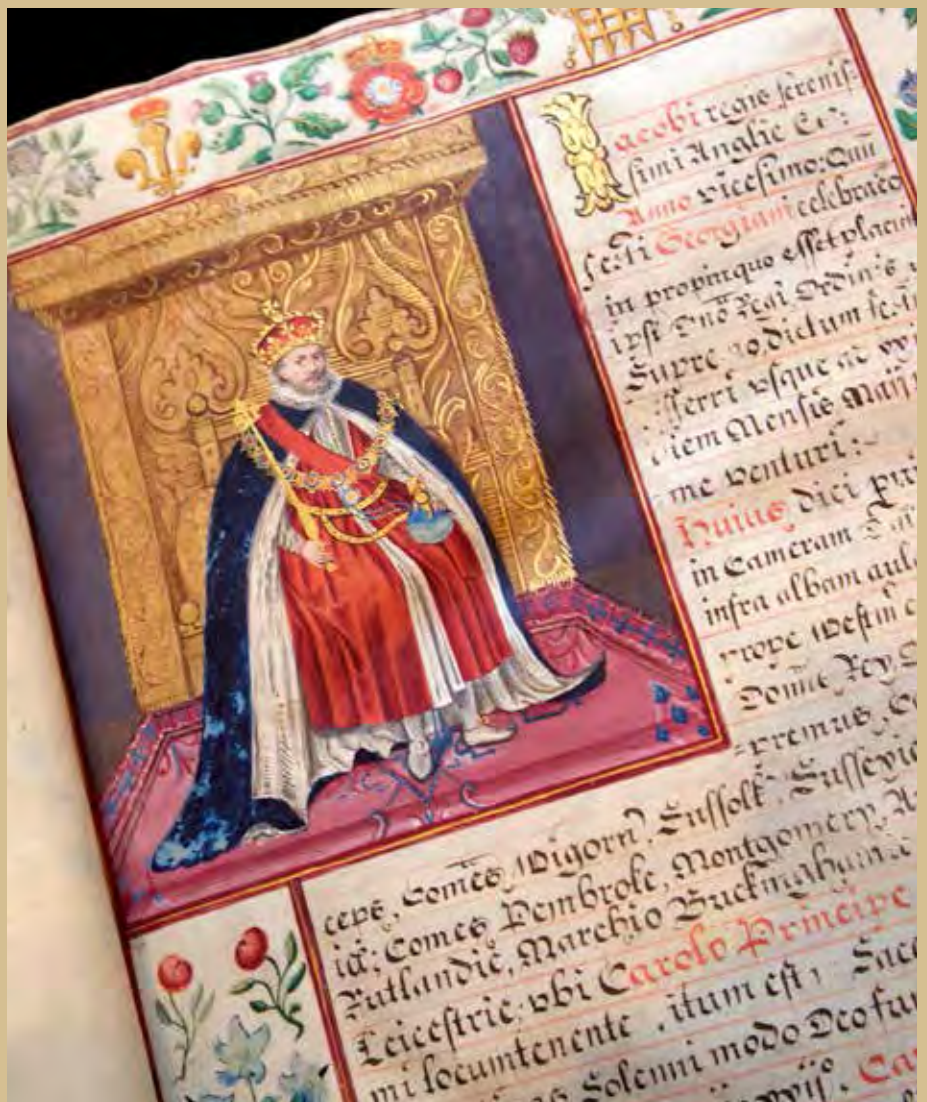 Iacobi regis serenis:
simi Anglie &c:
Anno vicesimo: Quū
festi Georgiani celebraco
in propinquo esset placui
ipsi Dnō Regi Ordinis
dictum
differri vsque ad
diem Mensis Maij
me venturi:
Huius diei
in Cameram
infra albam aul
prope westm
Rex
=premus, Co
ceps, Comēs, Wigorn, Suffolk, Sussexie
Comes Pembroke, Montgomery, A
Rutlandie, Marchio Buckinghamie
Leicestrie, vbi Carolo Principe
mi locumtenente, itum est, Sace
Solenni modo Deo fu
Ca